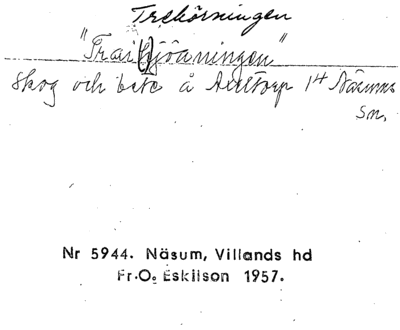 Trehörningen
"Traihjörningen"
Skog och bete å Axeltorp 1⁴ Näsums
Sn.
Nr 5944. Näsum, Villands hd
Fr.O. Eskilson 1957.